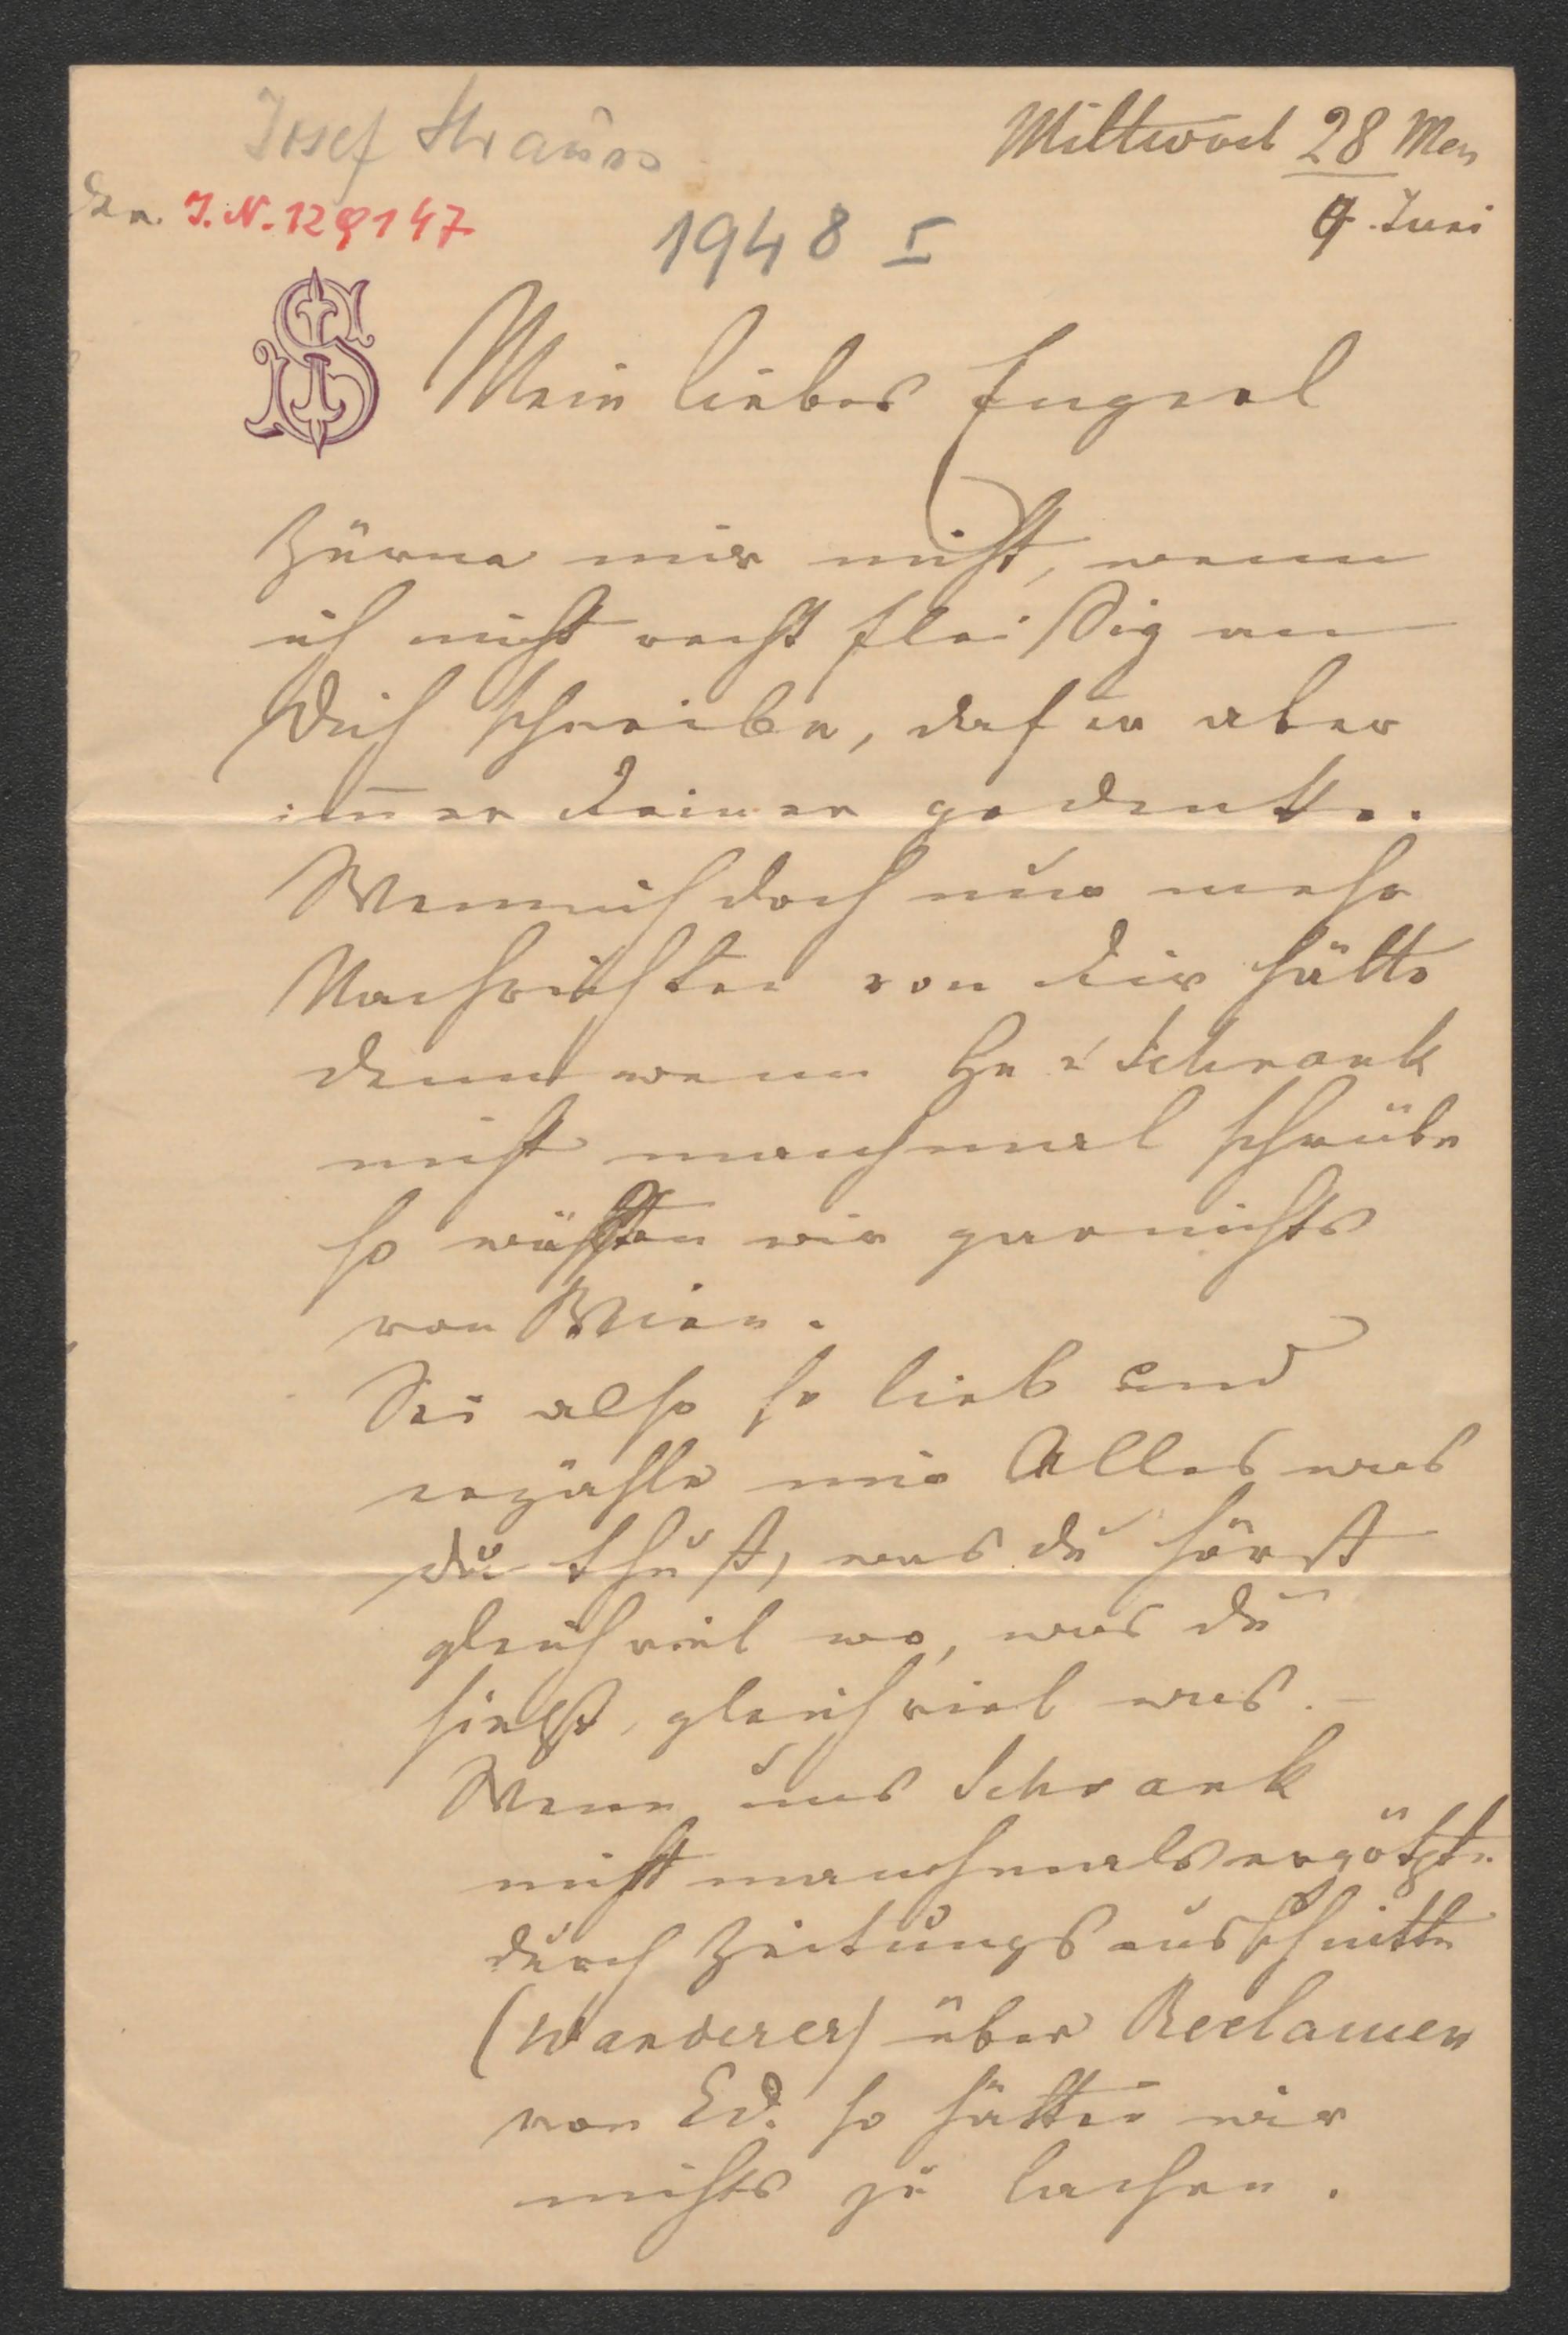 Josef Strauss
Mittwoch 28 Mai
9. Juni
I.N. 129147
1948 I
JS
Mein liebes Engerl
Zürne mir nicht, wenn
ich nicht recht fleißig an
Dich schreibe, dafür aber
im̅er Deiner gedenke.
Wenn ich doch nur mehr
Nachrichten von Dir hätte
denn wenn Hr Schrank
nicht manchmal schriebe
so wüßten wir gar nichts
von Wien.
Sei also so lieb und
erzähle mir Alles was
du thust, was du hörst
gleichviel wo, was du
siehst, gleichviel was. –
Wenn uns Schrank
nicht manchmals ergötzte
durch Zeitungsausschnitte
(Wanderer) über Reclamen
von Ed. so hätten wir
nichts zu lachen.